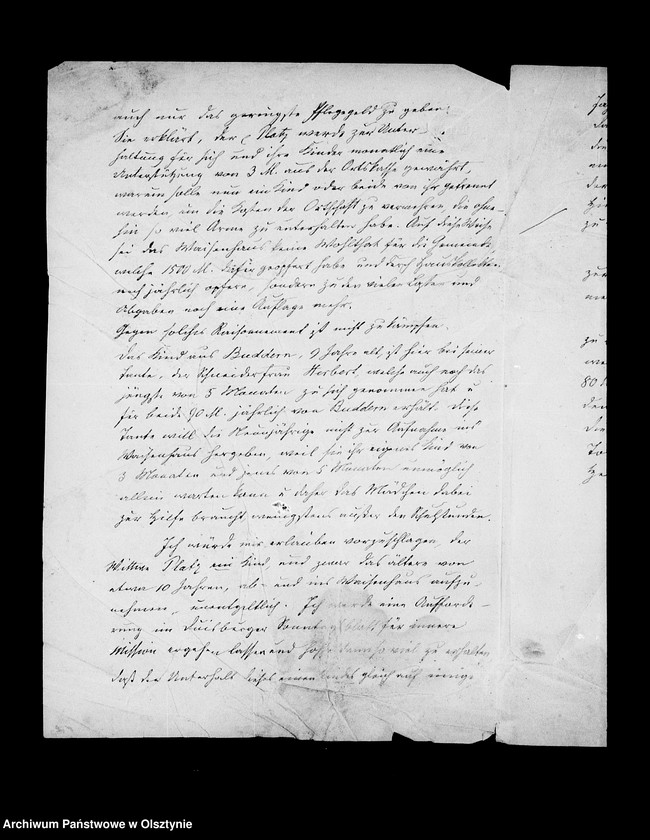 auch nur das geringste Pflegegeld zu geben.
Sie erklärt, der p Platz werde zur Unter-
haltung für sich und ihre Kinder monatlich eine
Unterstützung von 3 M. aus der Ortskasse gewährt,
warum solle nun ein Kind oder beide von ihr getrennt
werden, um die Kosten der Ortschaft zu vermehren, die ohne-
hin so viel Arme zu unterhalten habe. Auf diese Weise
sei das Waisenhaus keine Wohlthat für die Gemeinde,
welche 1500 M. dafür geopfert habe und durch Hauskollekten
noch jährlich opfere, sondern zu den vielen Lasten und
Abgaben noch eine Auflage mehr.
Gegen solches Raisonnement ist nicht zu kämpfen.
Das Kind aus Buddern, 9 Jahre alt, ist hier bei seiner
Tante, der Schneiderfrau Herbert, welche auch noch das
jüngste von 5 Monaten zu sich genommen hat u
für beide 90 M. jährlich von Buddern erhält. Diese
Tante will die Neunjährige nicht zur Aufnahme ins
Waisenhaus hergeben, weil sie ihr eigenes Kind von
3 Monaten und jenes von 5 Monaten unmöglich
allein warten kann u daher das Mädchen dabei
zur Hilfe braucht wenigstens außer den Schulstunden.
Ich würde mir erlauben vorzuschlagen, der
Wittwe Platz ein Kind, und zwar das ältere von
etwa 10 Jahren, ab- und ins Waisenhaus aufzu-
nehmen, unentgeltlich. Ich werde eine Aufforde-
rung im Duisburger Sonntagsblatt für innere
Mission ergehen lassen und hoffe dann so viel zu erhalten,
daß der Unterhalt dieses einen Kindes gleich auf einige
80 M
Archiwum Państwowe w Olsztynie